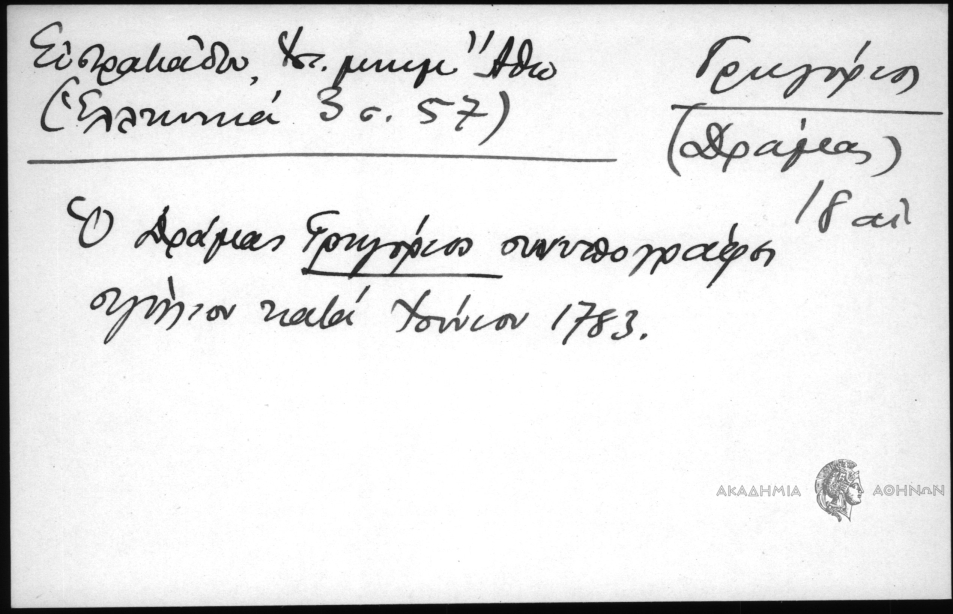 Εὐστρατιάδου, Ἱστ. μνημ. Ἄθω
(Ἑλληνικά 3 σ. 57)
Γρηγόριος
(Δράμας)
18 αἰ.
Ὁ Δράμας Γρηγόριος συνυπογράφει
σιγίλλιον κατά Ἰούνιον 1783.
ΑΚΑΔΗΜΙΑ ΑΘΗΝΩΝ